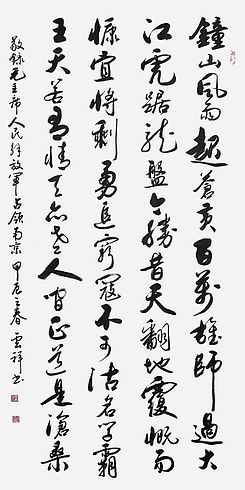 鐘山風雨起蒼黃百萬雄師過大
江虎踞龍盤今勝昔天翻地覆慨而
慷宜將剩勇追窮寇不可沽名學霸
王天若有情天亦老人間正道是滄桑
敬錄毛主席人民解放軍占領南京甲辰立春雲祥書